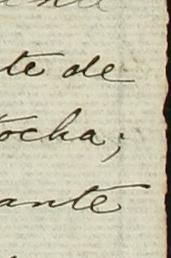 te de
ocha;
ante